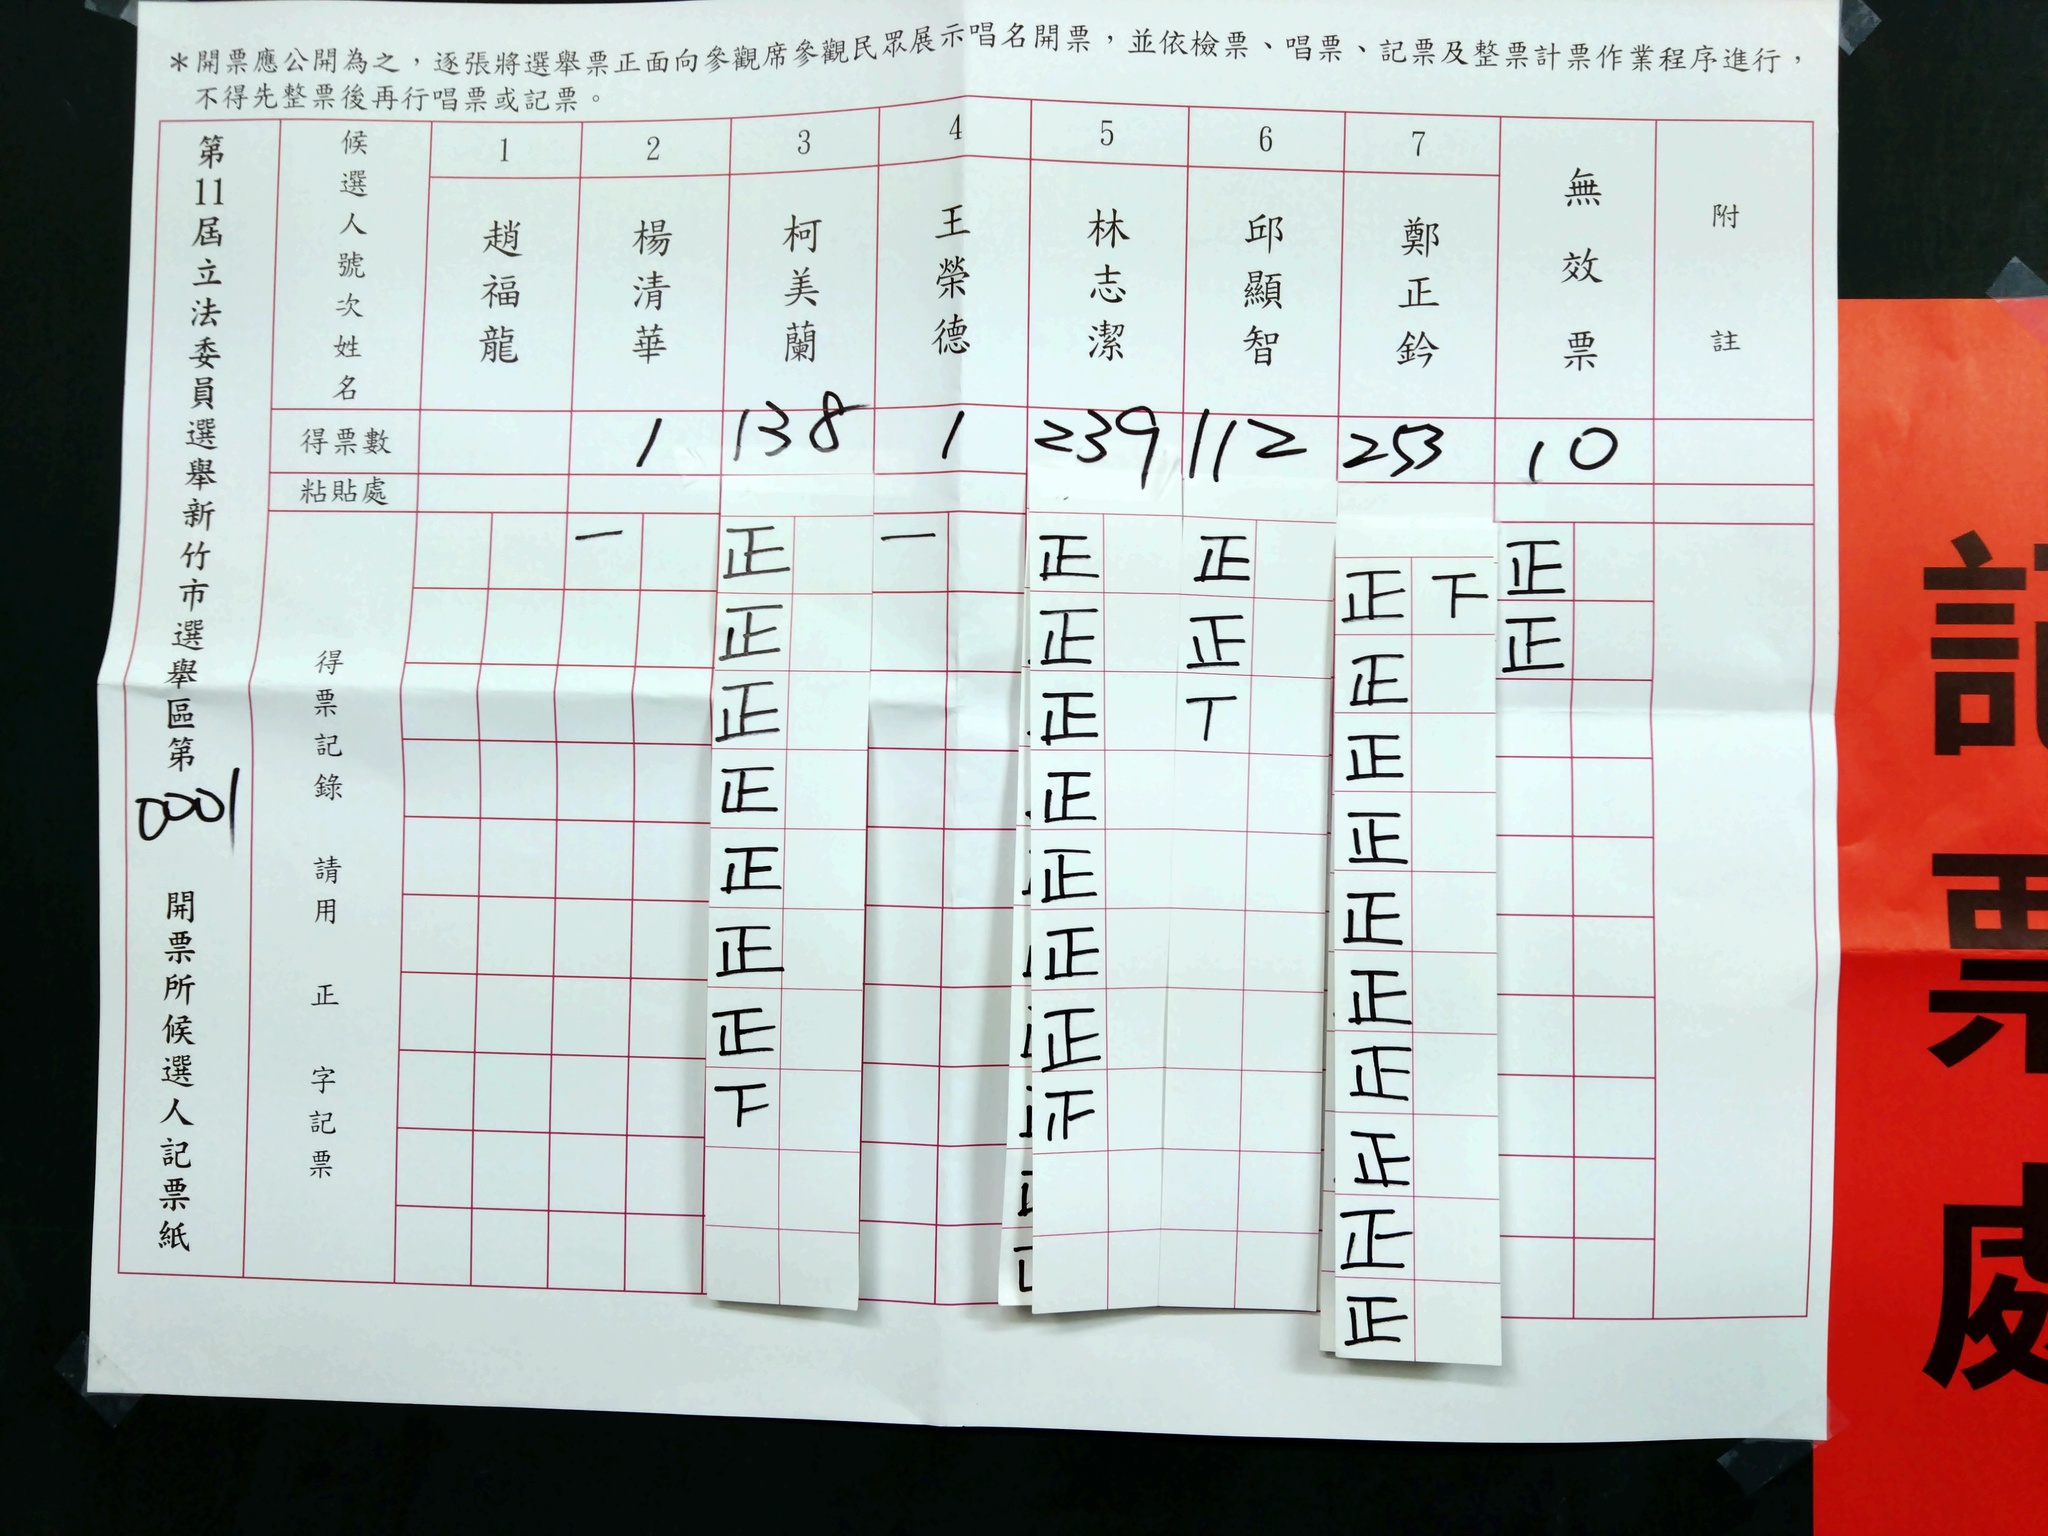 ＊開票應公開為之，逐張將選舉票正面向參觀席參觀民眾展示唱名開票，並依檢票、唱票、記票及整票計票作業程序進行，
不得先整票後再行唱票或記票。
第11屆立法委員選舉新竹市選舉區第0001開票所候選人記票紙
候選人號次姓名
1 趙福龍
2 楊清華
3 柯美蘭
4 王榮德
5 林志潔
6 邱顯智
7 鄭正鈐
無效票
附註
得票數 1 138 1 239 112 253 10
粘貼處
得票記錄 請用正字記票
一
正
正
正
正
正
正
正
下
一
正
正
正
正
正
正
正
正
正
丅
正 下
正
正
正
正
正
正
正
正
正
正
正
記票處